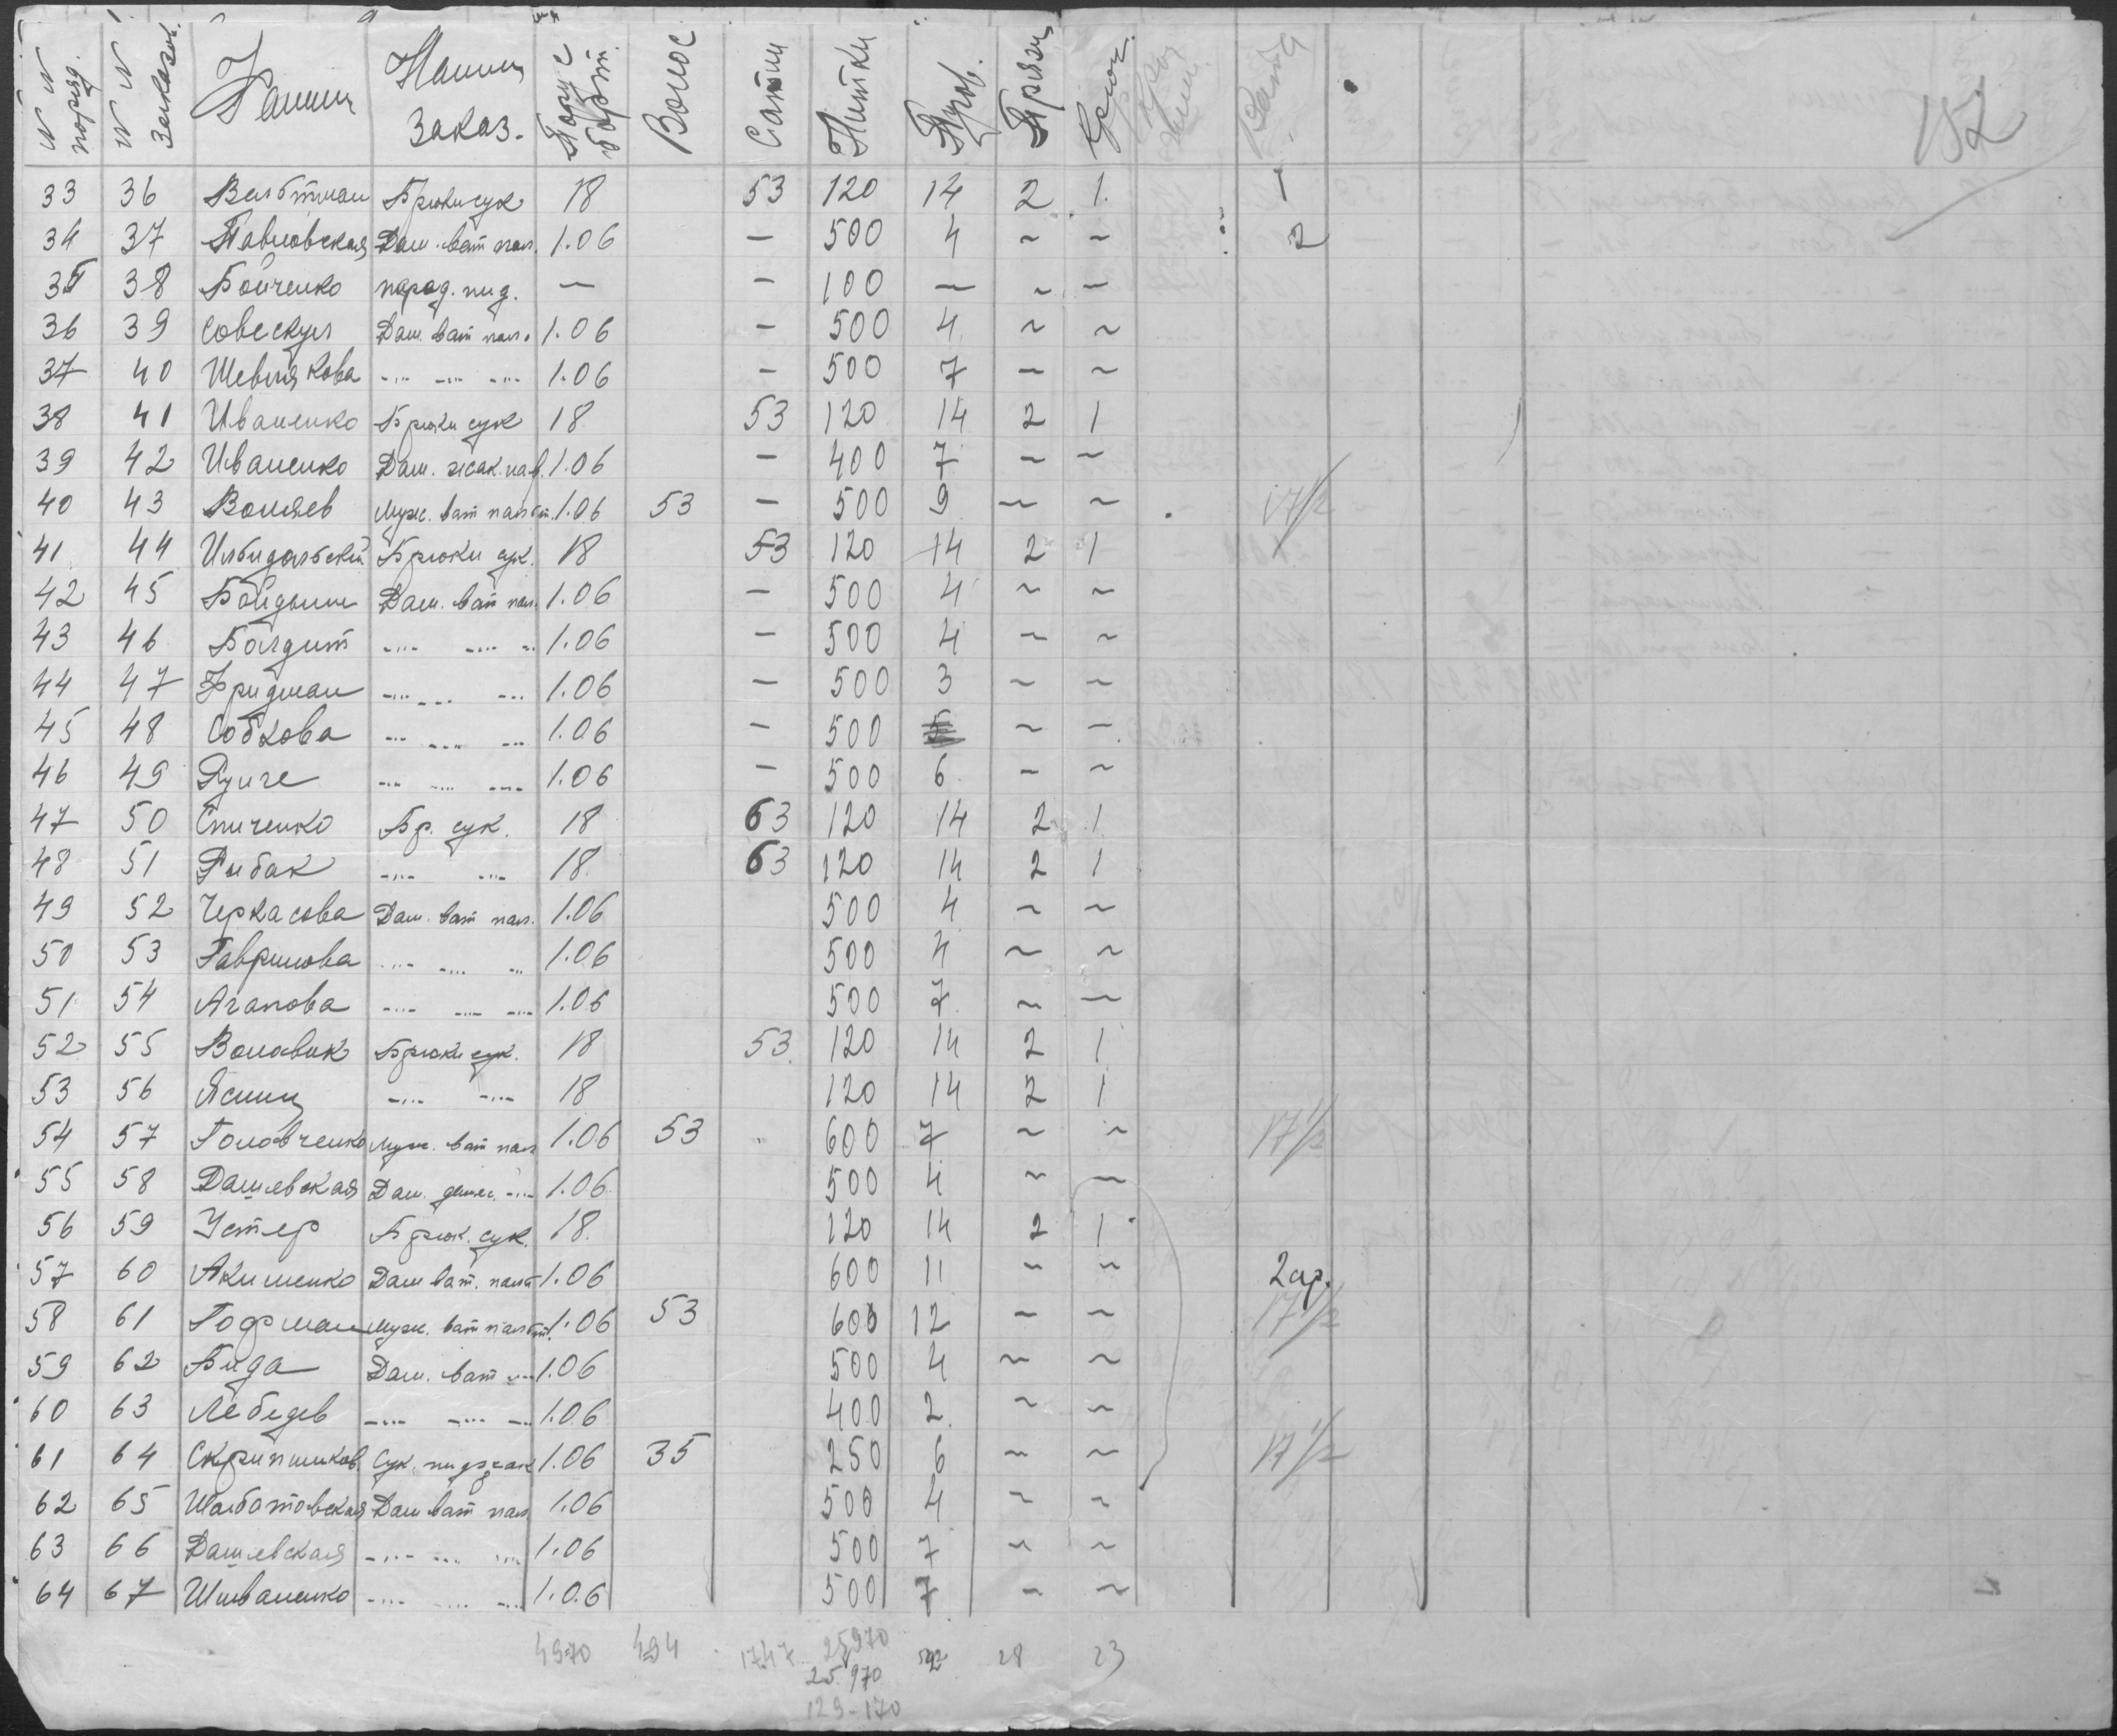 N N поряд. N N Заказов. Фамил Наимн Заказ. Порус борт. Волос Сатин Нитки Пугов. Пряж Крюч. Вата 152
33 36 Вальтман Брюки сук 18 53 120 14 2 1. 1
34 37 Павловская Дам. ват пал. 1.06 — 500 4 ~ ~ 2
35 38 Бойченко парад. пид. — — 100 — ~ —
36 39 Совескул Дам. ват пал. 1.06 — 500 4 ~ ~
37 40 Шевлякова -"- -"- -"- 1.06 — 500 7 — ~
38 41 Иваненко Брюки сук 18 53 120 14 2 1
39 42 Иваненко Дам. жак. 1.06 — 400 7 ~ ~
40 43 Воляев Муж. ват пальт. 1.06 53 — 500 9 ~ ~ 17 1/2
41 44 Брюки сук. 18 53 120 14 2 1
42 45 Дам. ват пал. 1.06 — 500 4 ~ ~
43 46 -"- -"- -"- 1.06 — 500 4 ~ ~
44 47 Фридман -"- -"- -"- 1.06 — 500 3 ~ ~
45 48 Собкова -"- -"- -"- 1.06 — 500 5 ~ —
46 49 Рунге -"- -"- -"- 1.06 — 500 6 — ~
47 50 Спиченко Бр. сук. 18 63 120 14 2 1
48 51 Рибак -"- -"- 18 63 120 14 2 1
49 52 Черкасова Дам. ват пал. 1.06 500 4 ~ ~
50 53 Гаврилова -"- -"- -"- 1.06 500 4 ~ ~
51 54 Агапова -"- -"- -"- 1.06 500 7 ~ —
52 55 Волавик Брюки сук. 18 53 120 14 2 1
53 56 -"- -"- 18 120 14 2 1
54 57 Головченко Муж. ват пал 1.06 53 600 7 ~ ~ 17 1/2
55 58 Дашевская Дам. -"- 1.06 500 4 ~ —
56 59 Устер Брюк. сук. 18. 120 14 2 1
57 60 Акименко Дам ват. пальт 1.06 600 11 ~ ~ 2 ар.
58 61 Гофман Муж. ват пальт. 1.06 53 600 12 ~ ~ 17 1/2
59 62 Бида Дам. ват -"- 1.06 500 4 ~ ~
60 63 Лебедев -"- -"- -"- 1.06 400 2 ~ ~
61 64 Скрипников. Сук. пиджак 1.06 35 250 6 ~ ~ 17 1/2
62 65 Шалбатовская Дам ват пал 1.06 500 4 ~ ~
63 66 Дашевская -"- -"- -"- 1.06 500 7 ~ ~
64 67 -"- -"- -"- 1.06 500 7 ~ ~
4970 494 1747 25970 28 23
25.970
129-170